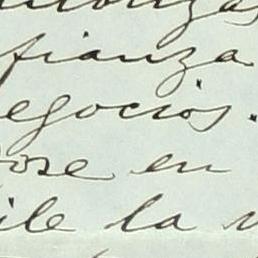 fianza
egocios.
ose en
ile la